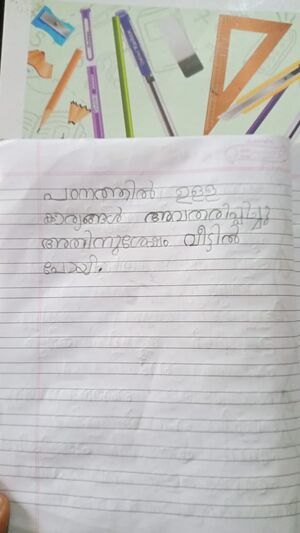 പഠനത്തിൽ ഉള്ള
കാര്യങ്ങൾ അവതരിപ്പിച്ചു
അതിനുശേഷം വീട്ടിൽ
പോയി.